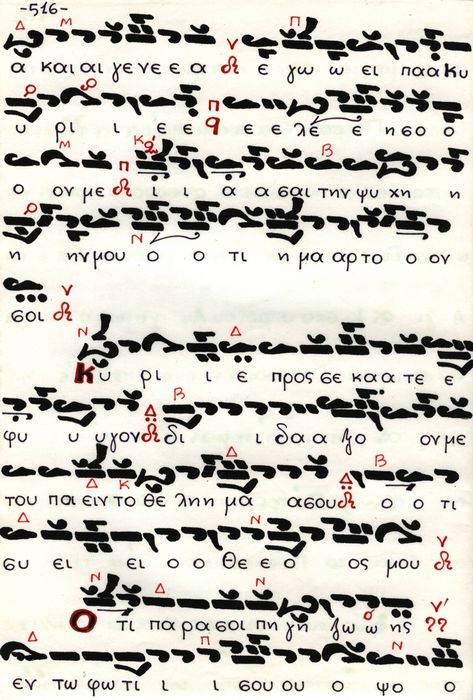 -516-
α και αι γε νε ε α ε γω ω ει πα α Κυ
υ ρι ι ε ε ε ε λε ε η σο ο
ο ον με ι ι α α σαι την ψυ χη η
η ην μου ο ο τι η μα αρ το ο ον
σοι
Κυ ρι ι ε προς σε κα α τε ε
φυ υ υγον δι ι δα α ξο ον με
του ποι ειν το θε λη η μα α σου ο ο τι
συ ει ει ο ο θε ε ο ο ος μου
Ο τι πα ρα σοι πη γη ζω ω ης
εν τω φω τι ι ι σου ου ο ψο ο